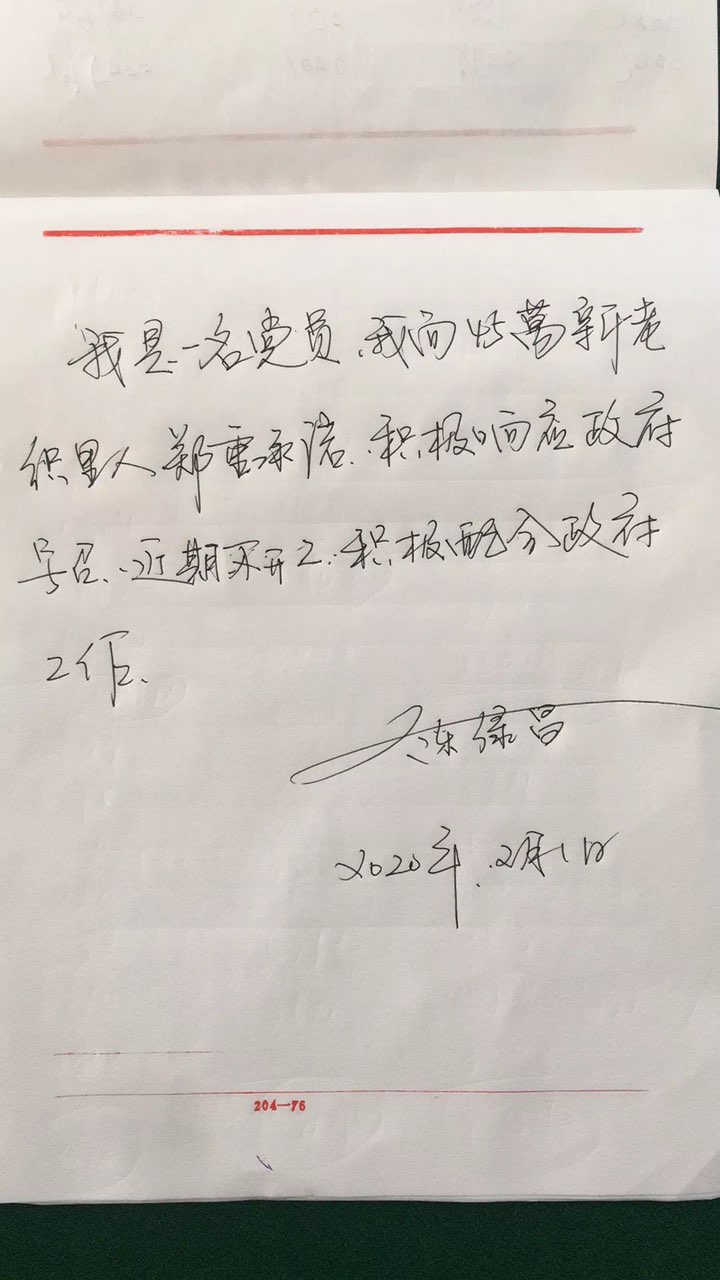 我是一名党员、我向45萬新老
织里人郑重承诺、积极响应政府
号召、近期不开工.积极配合政府
工作、
绿昌
2020年.2月1日
204—76